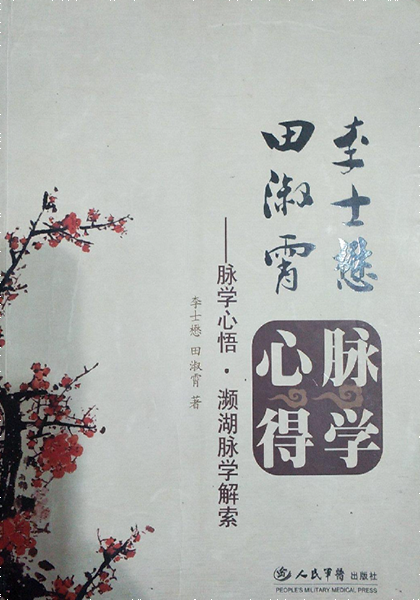 李士懋
田淑霄
脉学
心得
——脉学心悟·濒湖脉学解索
李士懋 田淑霄 著
人民军医 出版社
PEOPLE'S MILITARY MEDICAL PRESS